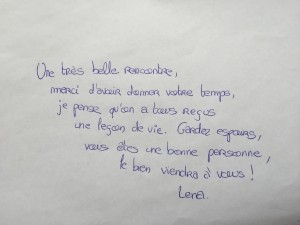 Une très belle rencontre,
merci d'avoir donner votre temps,
je pense qu'on a tous reçus
une leçon de vie. Gardez espours,
vous êtes une bonne personne,
le bien viendra à vous !
Lena.